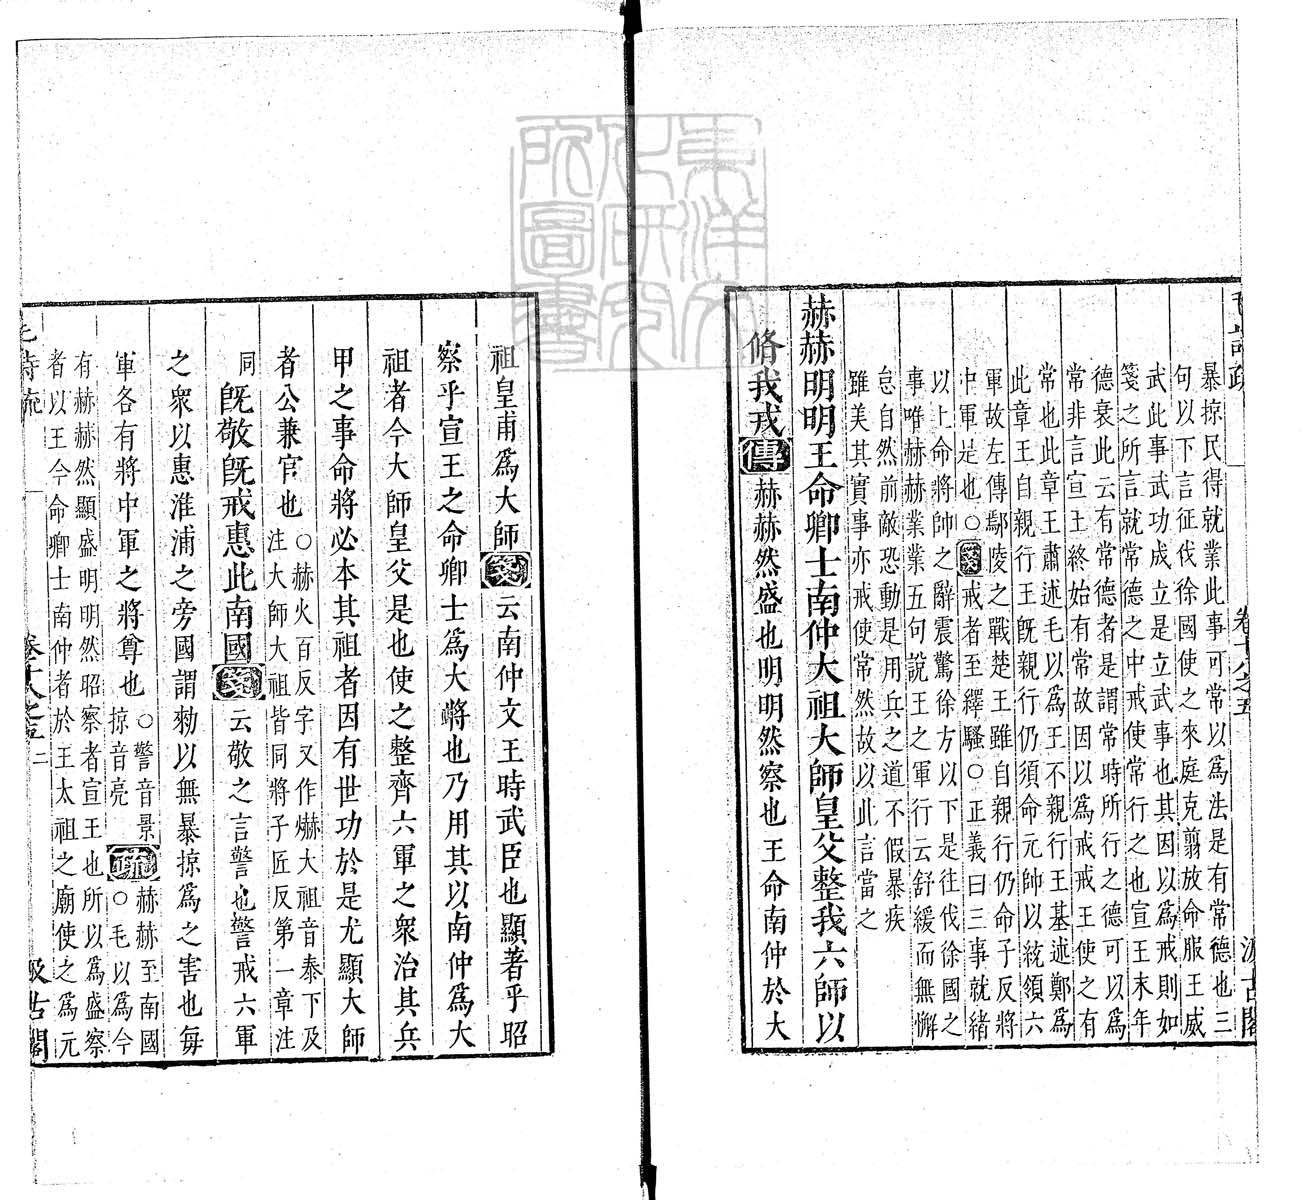 毛詩疏 卷十八之五 汲古閣
暴掠民得就業此事可常以爲法是有常德也三
何以下言征伐徐國使之來庭克翦放命服王威
武此事武功成立是立武事也其因以爲戒則如
箋之所言就常德之中戒使常行之也宣王末年
德衰此云有常德者是謂常時所行之德可以爲
常非言宣王終始有常故因以爲戒戒王使之有
常也此章王肅述毛以爲王不親行王基述鄭爲
此章王自親行王旣親行仍須命元帥以統領六
軍故左傳鄢陵之戰楚王雖自親行仍命子反將
中軍是也○箋戒者至繹騷○正義曰三事就緒
以上命將帥之辭震驚徐方以下是往伐徐國之
事唯赫赫業業五句說王之軍行云舒緩而無懈
怠自然前敵恐動是用兵之道不假暴疾
雖美其實事亦戒使常然故以此言當之
赫赫明明王命卿士南仲大祖大師皇父整我六師以
脩我戎傳赫赫然盛也明明然察也王命南仲於大
祖皇甫爲大師箋云南仲文王時武臣也顯著乎昭
察乎宣王之命卿士爲大將也乃用其以南仲爲大
祖者今大師皇父是也使之整齊六軍之衆治其兵
甲之事命將必本其祖者因有世功於是尤顯大師
者公兼官也○赫火百反字又作爀大祖音泰下及
注大師大祖皆同將子匠反第一章注
同旣敬旣戒惠此南國箋云敬之言警也警戒六軍
之衆以惠淮浦之旁國謂勑以無暴掠爲之害也每
軍各有將中軍之將尊也○警音景
掠音亮疏赫赫至南國
○毛以爲今
有赫赫然顯盛明明然昭察者宣王也所以爲盛察
者以王今命卿士南仲者於王太祖之廟使之爲元
毛詩疏 卷十八之五 二 汲古閣